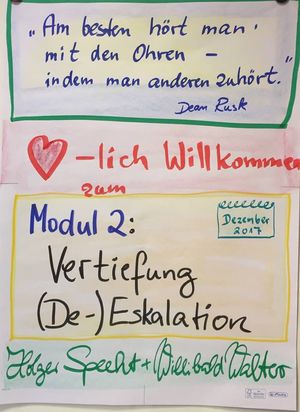 „Am besten hört man
mit den Ohren –
indem man anderen zuhört."
Dean Rusk
–lich Willkommen
zum
Modul 2:
Dezember
2017
Vertiefung
(De-)Eskalation
Holger Specht + Willibald Walter